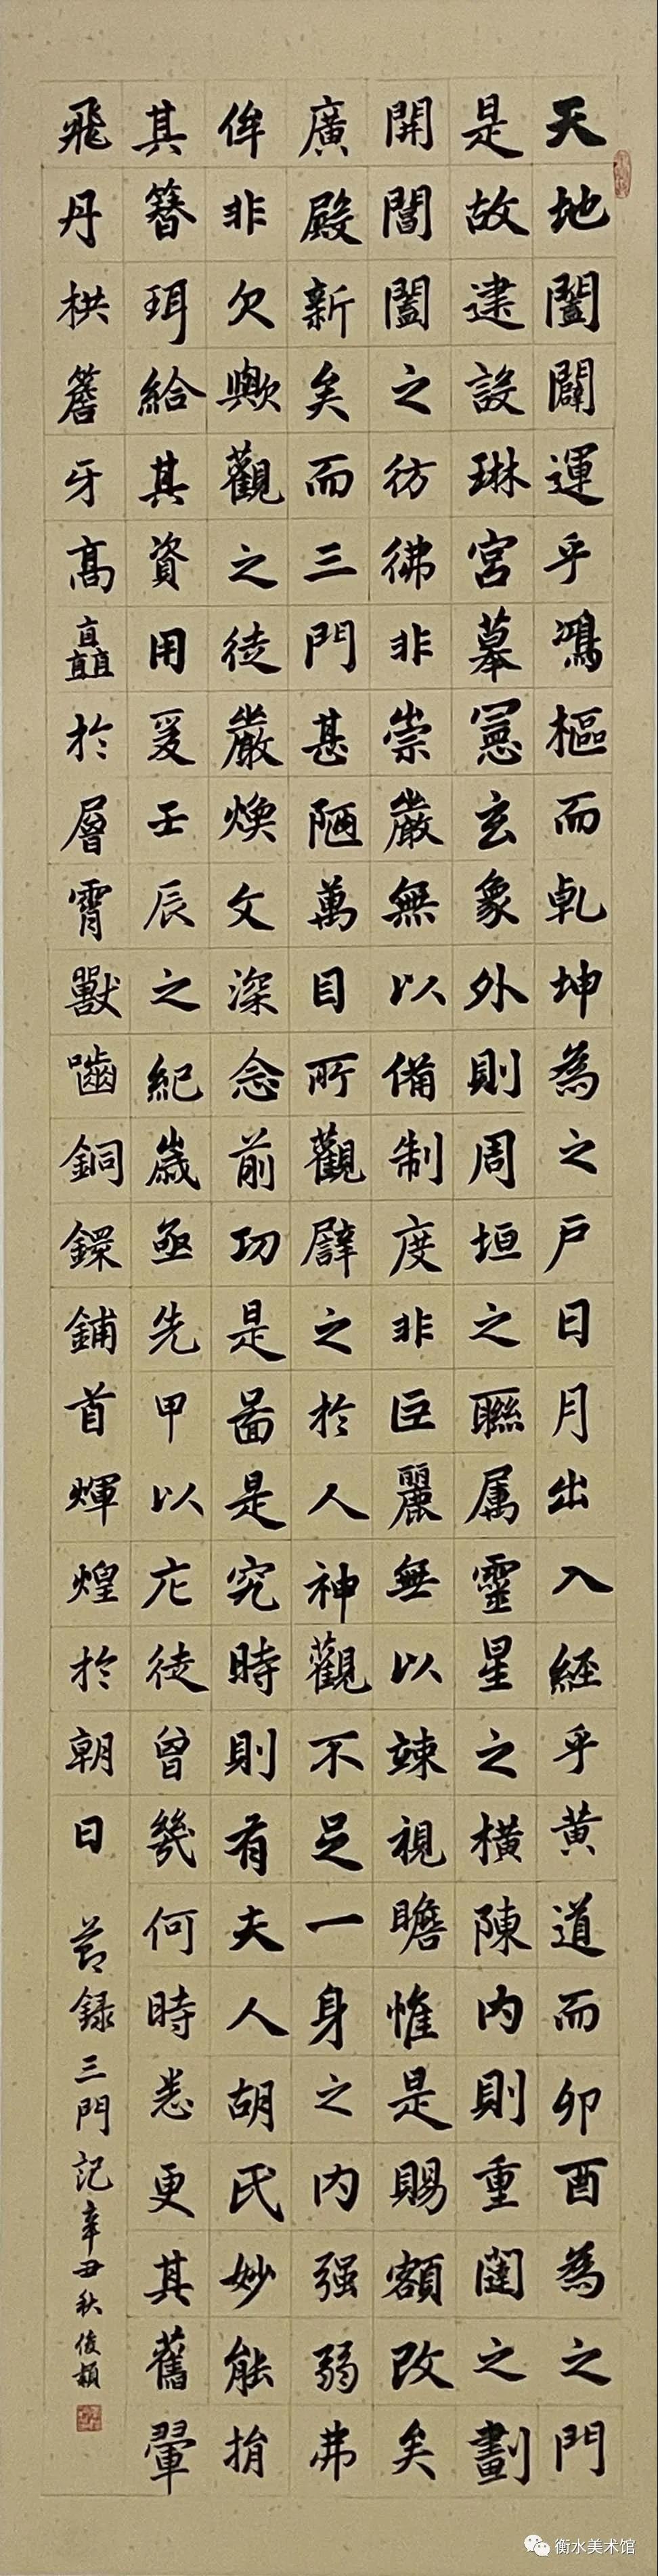 天地闔闢運乎鴻樞而乹坤為之戶日月出入經乎黄道而卯酉為之門
是故建設琳宮摹憲玄象外則周垣之聯属靈星之橫陳内則重闥之劃
開閶闔之彷彿非崇嚴無以備制度非巨麗無以竦視瞻惟是賜額改矣
廣殿新矣而三門甚陋萬目所觀譬之於人神觀不足一身之内强弱弗
侔非欠歟觀之徒嚴煥文深念前功是啚是究時則有夫人胡氏妙能捐
其簪珥給其資用爰壬辰之紀歲亟先甲以庀徒曾幾何時悉更其舊翬
飛丹栱簷牙高矗於層霄獸嚙銅鐶鋪首輝煌於朝日
節録三門記辛丑秋俊穎
衡水美术馆